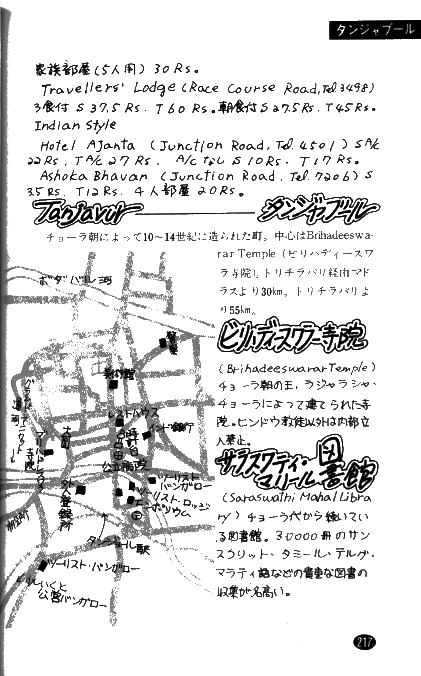 タンジャブール
家族部屋(5人用) 30Rs。
Travellers' Lodge (Race Course Road, Tel 3498)
3食付 S 37.5 Rs. T 60 Rs。朝食付 S 27.5Rs. T45Rs。
Indian Style
Hotel Ajanta (Junction Road, Tel. 4501) S A/c
22Rs, T A/c 27 Rs. A/c なし S 10Rs. T 17 Rs.
Ashoka Bhavan (Junction Road, Tel. 7206) S
3.5 Rs. T12 Rs. 4人部屋 20Rs。
Tanjavur タンジャブール
チョーラ朝によって10〜14世紀に造られた町。中心はBrihadeeswa-
rar Temple (ビリハディースワ
ラ寺院)。トリチラパリ経由マド
ラスより30km。トリチラパリよ
り55km。
ビリハディスワラー寺院
(Brihadeeswarar Temple)
チョーラ朝の王、ラジャラシャ・
チョーラによって建てられた寺
院。ヒンドウ教徒以外は内部立
入禁止。
サラスワティ・マハール図書館
(Saraswathi Mahal Libra
ry) チョーラ代から続いてい
る図書館。30000冊のサン
スクリット・タミール・テルグ・
マラティ語などの貴重な図書の
収集が名高い。
美術館
レストハウス
インド銀行
公立病院
ツーリスト
バンガロー
ツーリスト・ロッジ
エンポリウム
外人登録所
タンジャブール駅
ツーリスト・バンガロー
公営バンガロー
217